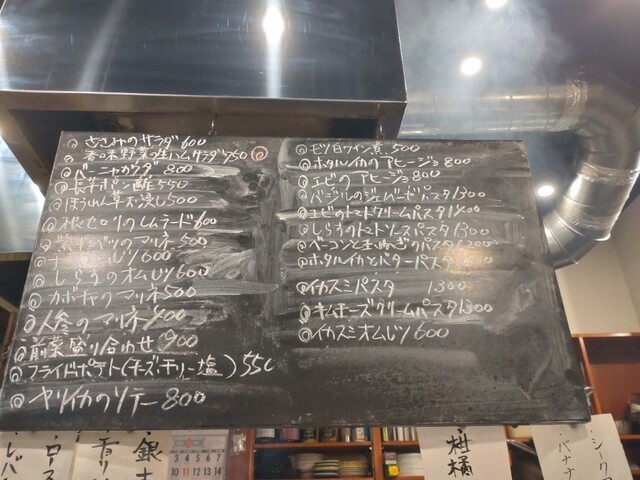 ささみのサラダ 600
香味野菜の生ハムサラダ 750
バーニャカウダ 800
長芋ポン酢 550
ほうれん草お浸し 500
根セロリのレムラード 600
のマリネ 500
オムレツ 600
しらすのオムレツ 600
カボチャのマリネ 500
人参のマリネ 400
前菜盛り合わせ 900
フライドポテト(チーズ・チリー・塩) 550
ヤリイカのソテー 800
モツ白ワイン煮 500
ホタルイカのアヒージョ 800
エビのアヒージョ 800
バジルのジェノベーゼパスタ 1300
エビのトマトクリームパスタ 1400
しらすのトマトソースパスタ 1300
ベーコンと玉ねぎのパスタ 1200
ホタルイカとバターパスタ
イカスミパスタ 1300
チーズクリームパスタ 1300
イカスミオムレツ 600
レバ
ロース
銀
3 4 5 6 7
10 11 12 13 14
柑橘
バナナ
シーク